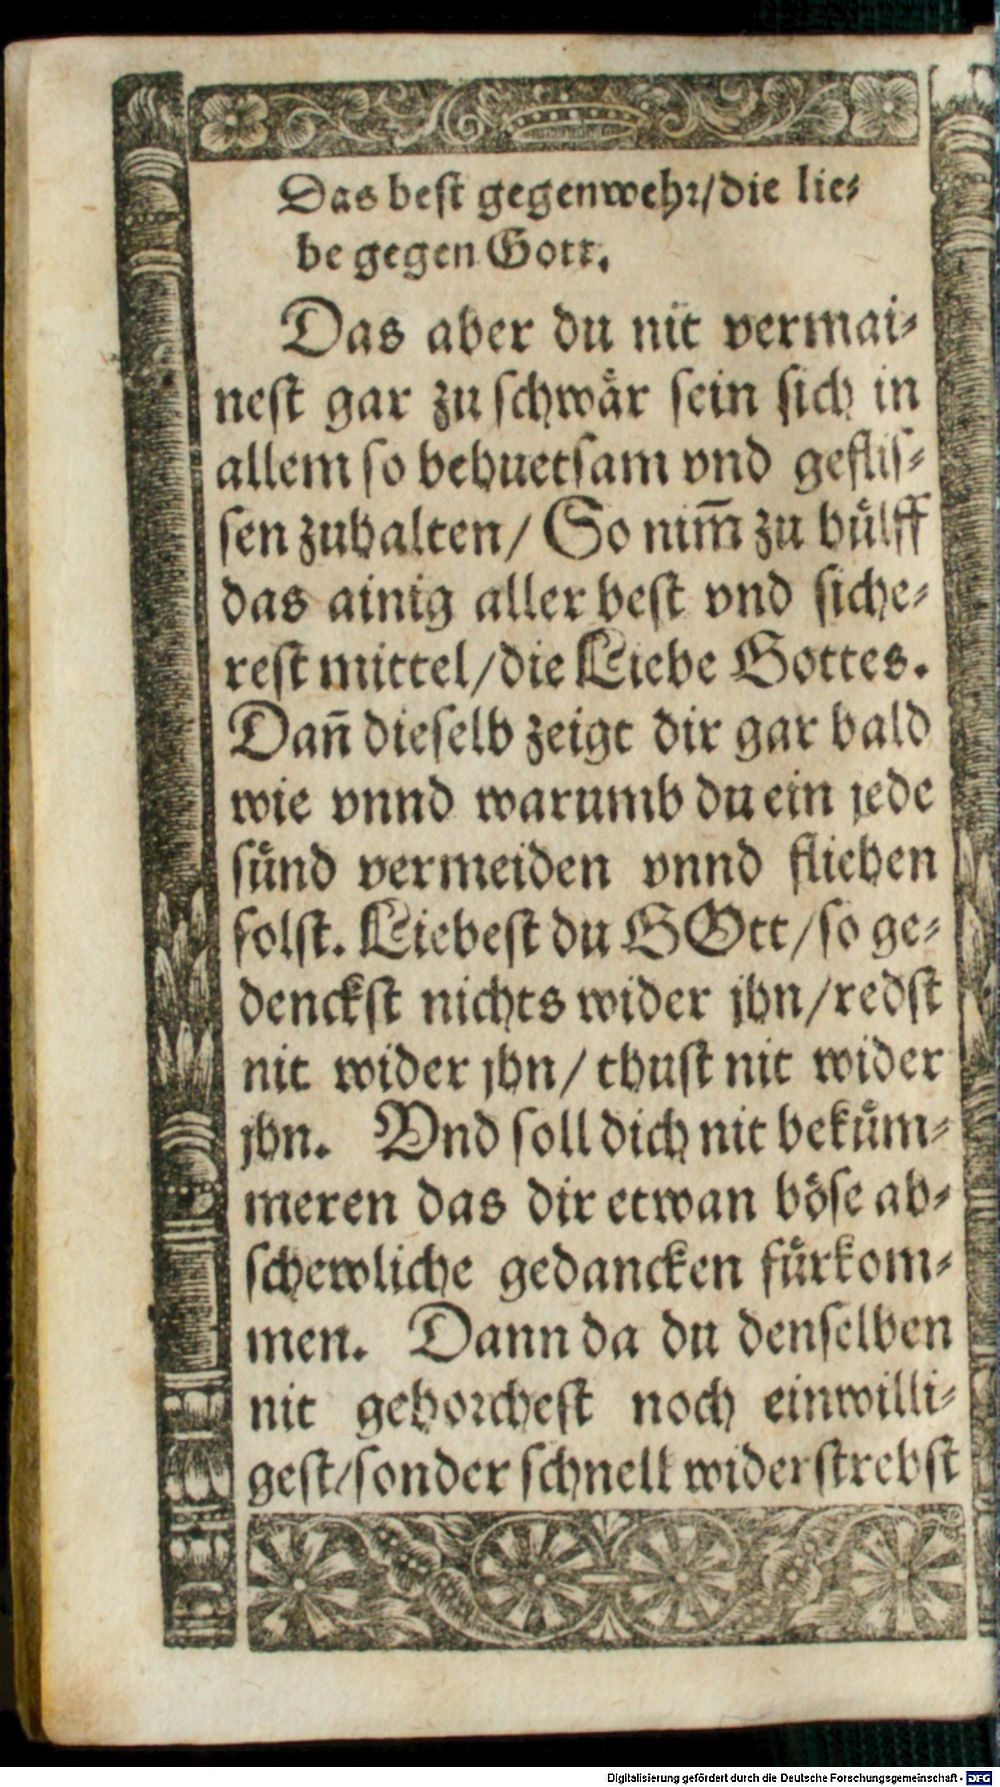 Das best gegenwehr/die lie⸗
be gegen Gott.
Das aber du nit vermai⸗
nest gar zu schwaͤr sein sich in
allem so behuetsam vnd geflis⸗
sen zuhalten/ So nim̄ zu huͤlff
das ainig aller best vnd siche⸗
rest mittel/die Liebe Gottes.
Dan̄ dieselb zeigt dir gar bald
wie vnnd warumb du ein jede
suͤnd vermeiden vnnd fliehen
solst. Liebest du GOtt/so ge⸗
denckst nichts wider jhn/redst
nit wider jhn/ thust nit wider
jhn. Vnd soll dich nit bekuͤm⸗
meren das dir etwan boͤse ab⸗
schewliche gedancken fuͤrkom⸗
men. Dann da du denselben
nit gehorchest noch einwilli⸗
gest/sonder schnell widerstrebst
Digitalisierung gefördert durch die Deutsche Forschungsgemeinschaft - DFG